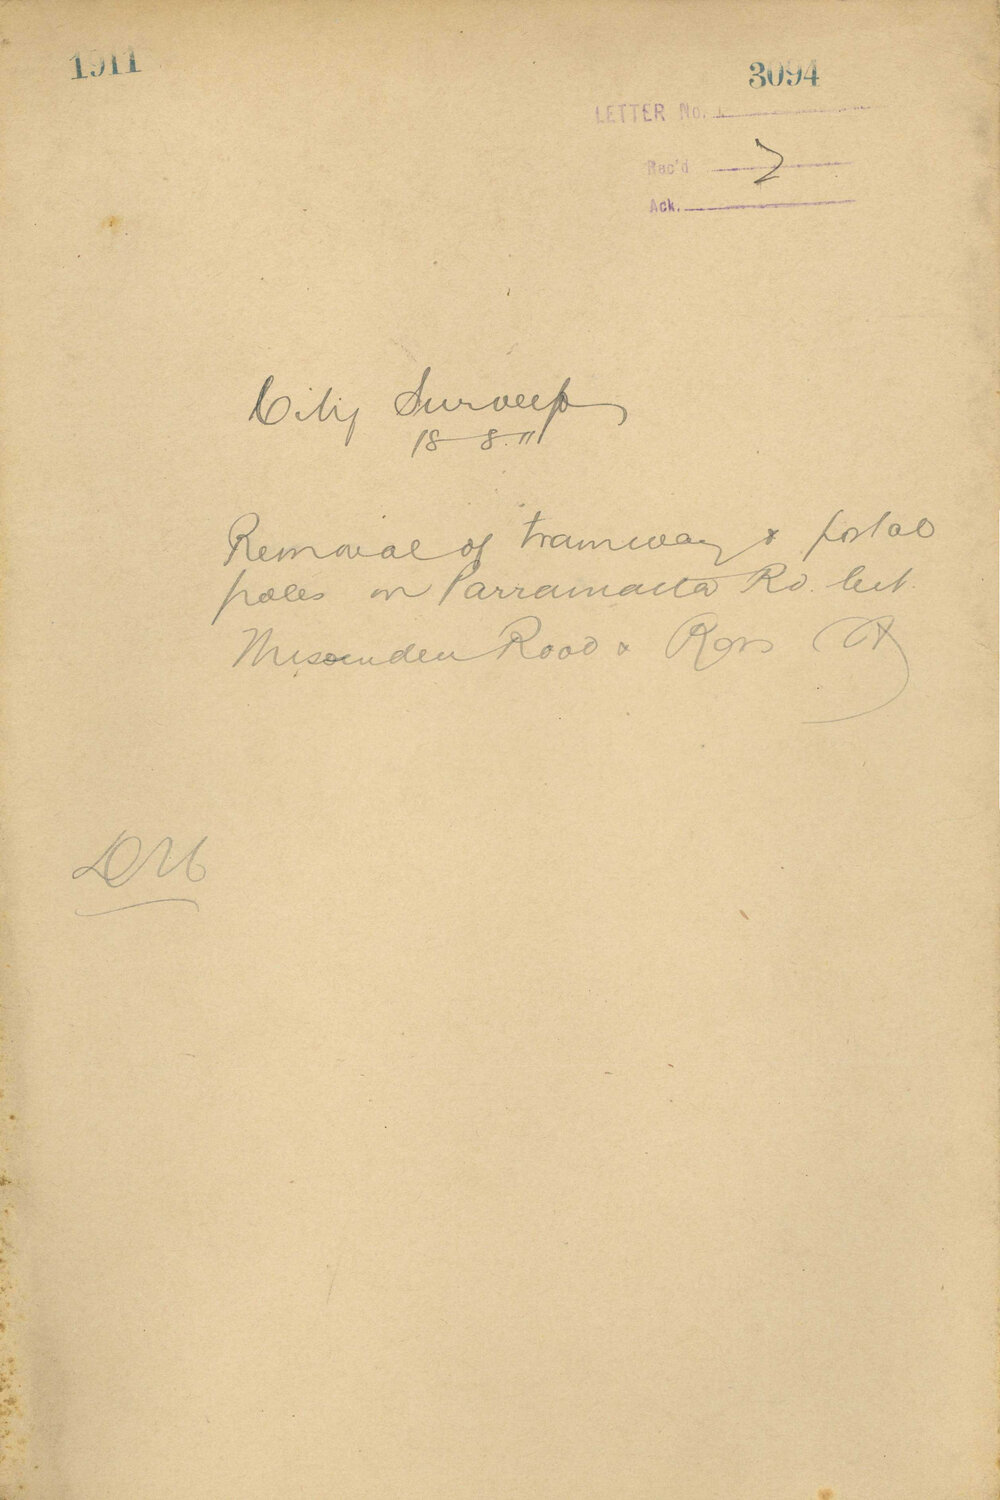 1911
3094
LETTER No.
Rec'd 7
Ack.
City Surveyor
18-8-11
Removal of tramway & postal
poles on Parramatta Rd. bet.
Missenden Road & Ross St